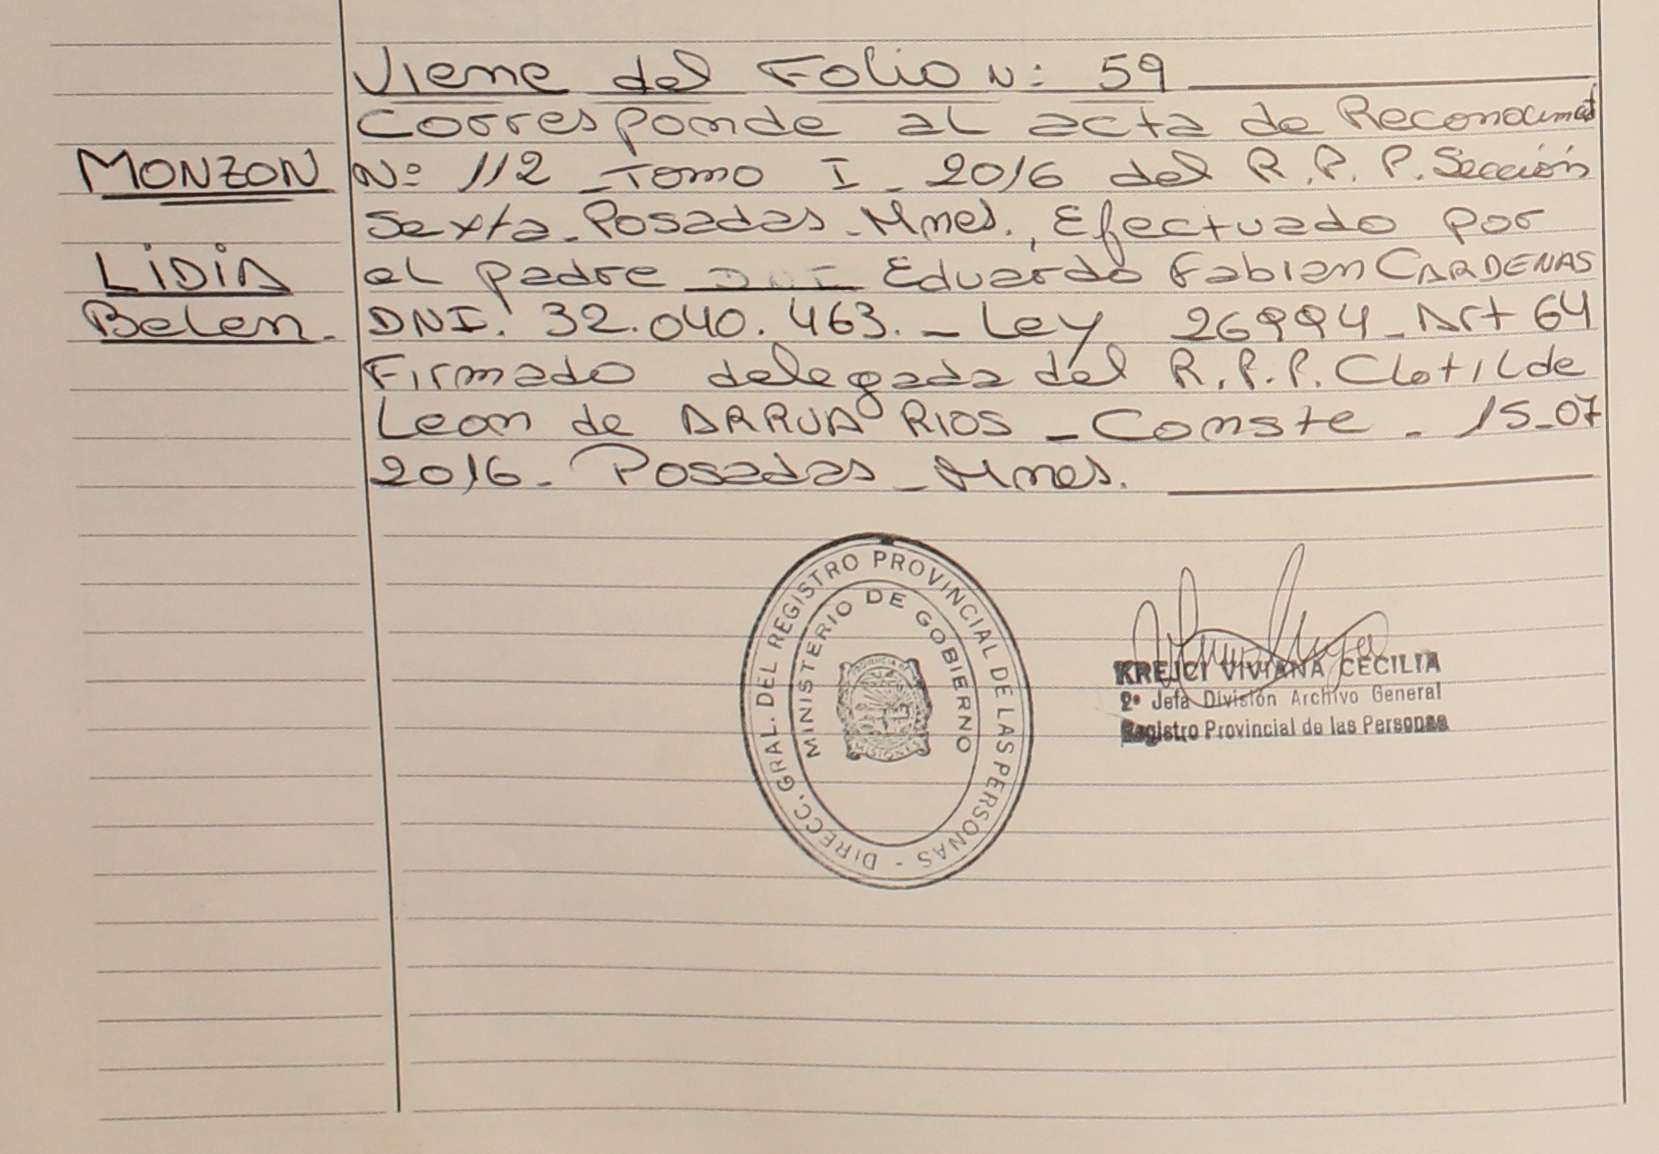 Viene del Folio N: 59
Corresponde al acta de Reconocimat
MONZON
Nº 112 _ Tomo I _ 2016 del R.P.P. Sección
Sexta _ Posadas _ Mnes., Efectuado por
LiDiA
el padre DNI Eduardo Fabian CARDENAS
Belen.
DNI. 32.040.463. _ Ley 26994 _ Art 64
Firmado delegada del R.P.P. Clotilde
Leon de ARRUA RIOS _ Conste _ 15_07
2016 _ Posadas _ Mnes.
DIRECC. GRAL. DEL REGISTRO PROVINCIAL DE LAS PERSONAS -
MINISTERIO DE GOBIERNO
PROVINCIA DE
MISIONES
KREJCI VIVIANA CECILIA
2ª Jefa División Archivo General
Registro Provincial de las Personas